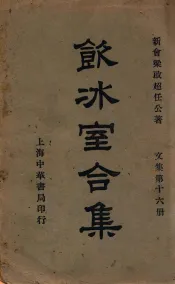 新會梁啟超任公著
文集第十六册
飲冰室合集
上海中華書局印行